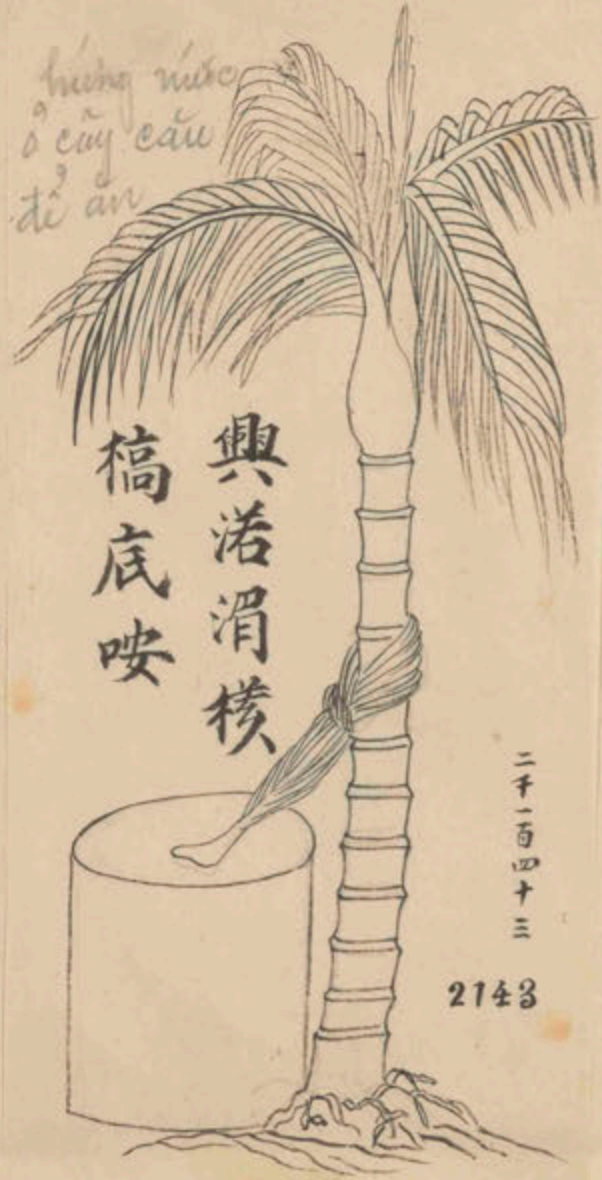 hứng nước
ở cây cău
để ăn
興渃湄𣘃
槁底咹
二千一百四十三
2143